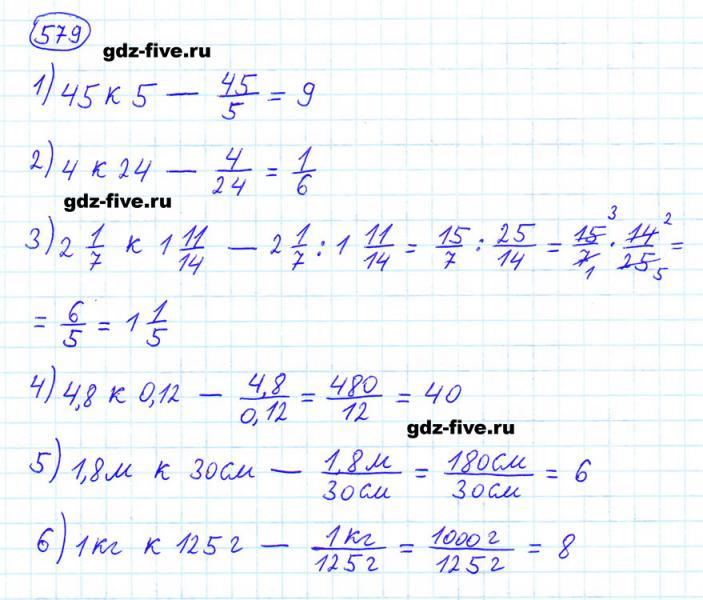 579
gdz-five.ru
1) 45 к 5 — 45/5 = 9
2) 4 к 24 — 4/24 = 1/6
gdz-five.ru
3) 2 1/7 к 1 11/14 — 2 1/7 : 1 11/14 = 15/7 : 25/14 = 15 3/7 1 · 14 2/25 5 =
= 6/5 = 1 1/5
4) 4,8 к 0,12 — 4,8/0,12 = 480/12 = 40
gdz-five.ru
5) 1,8м к 30см — 1,8м/30см = 180см/30см = 6
6) 1кг к 125г — 1кг/125г = 1000г/125г = 8